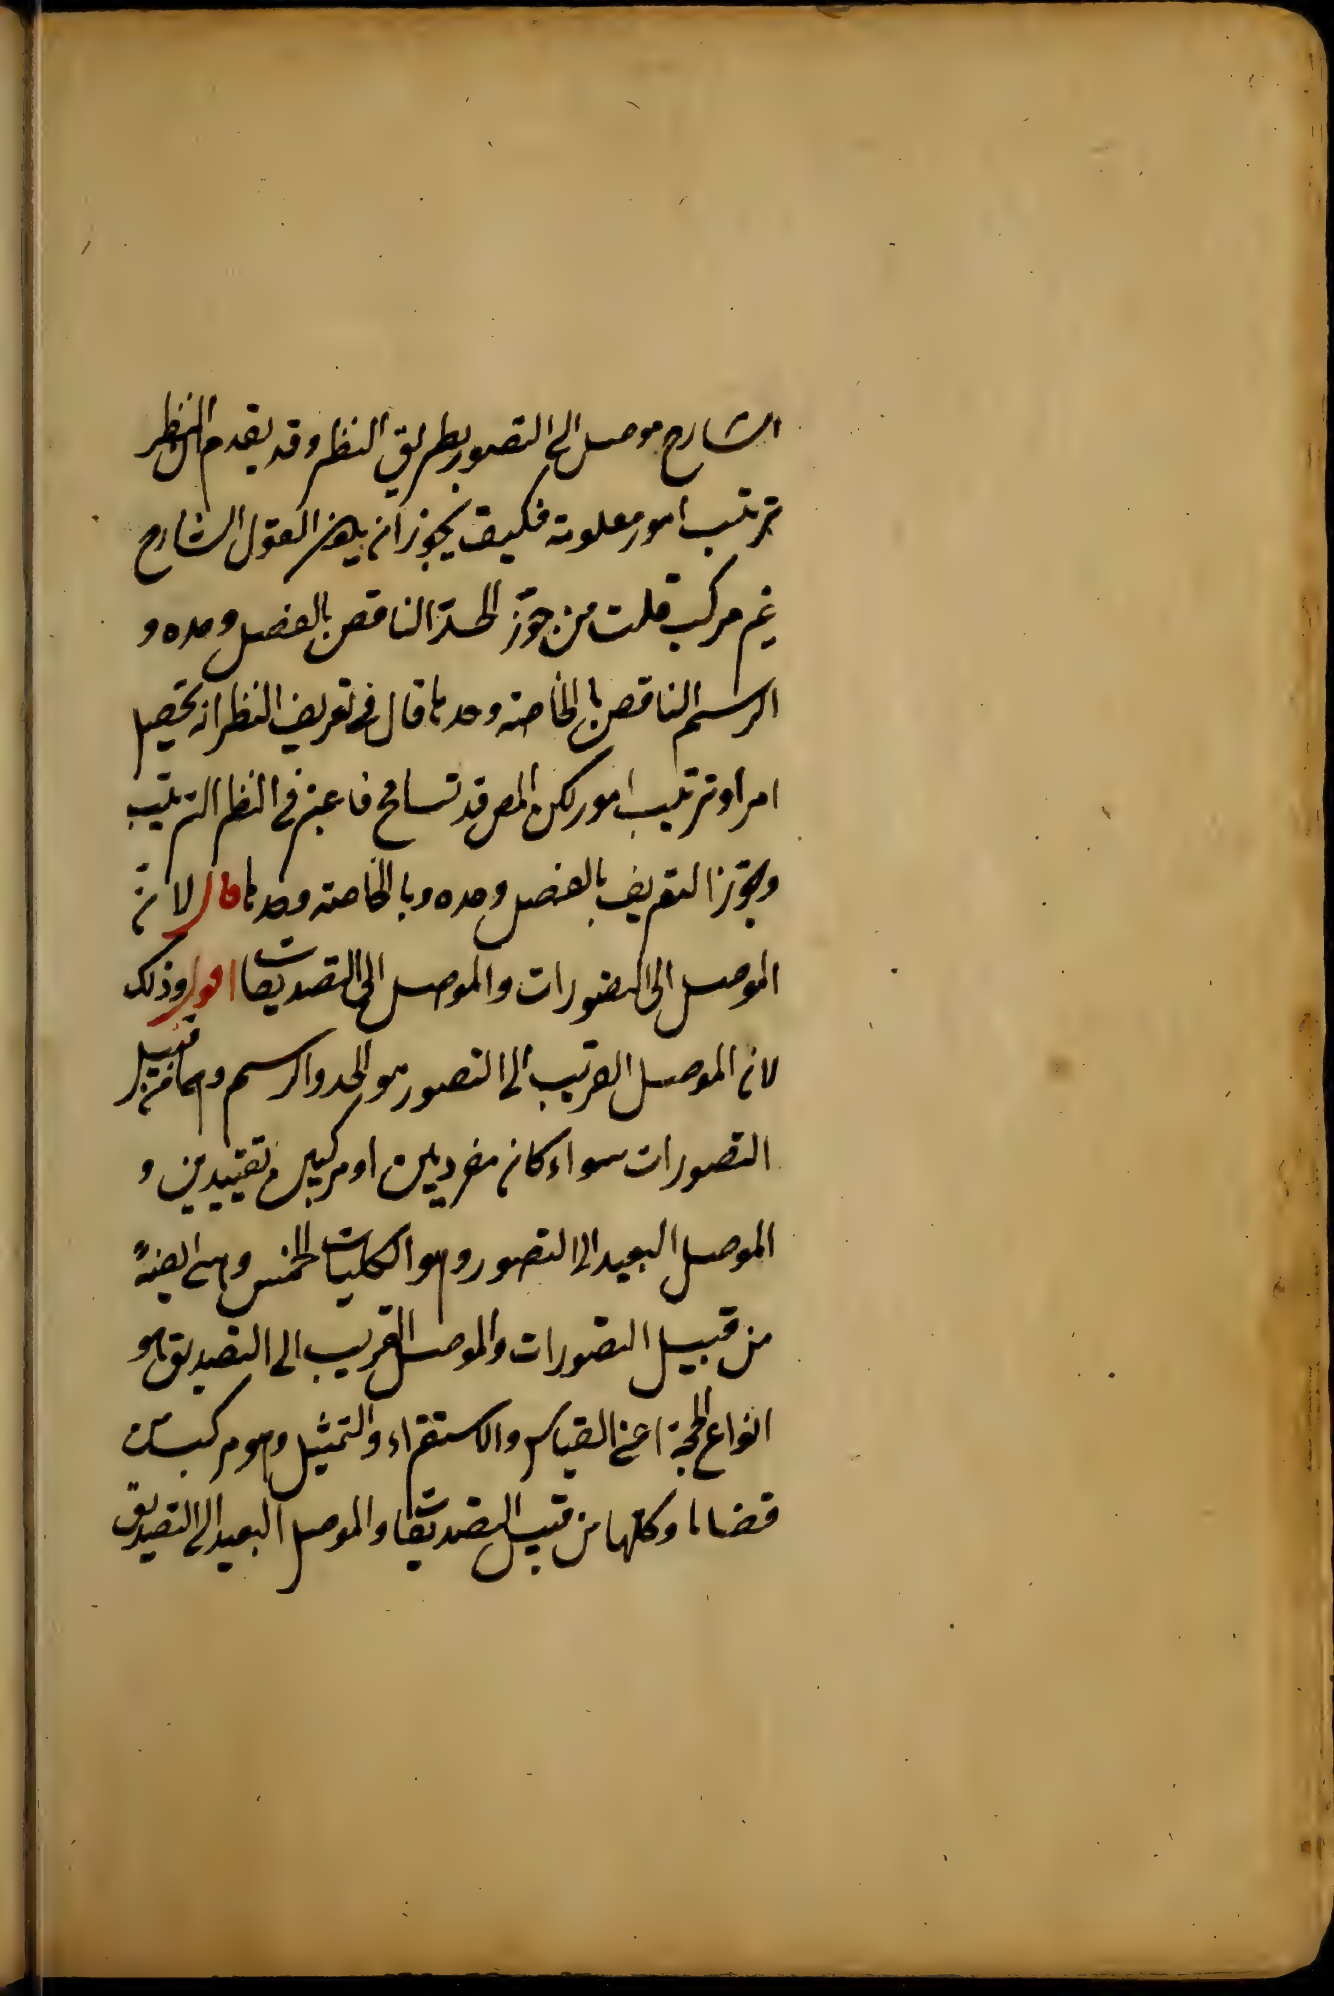 الشارح موصل الى التصور بطريق النظر وقد يقدم ان النظر
ترتيب امور معلومة فكيف يجوز ان يكون القول الشارح
غير مركب قلت من جوّز الحدّ الناقص بالفصل وحده و
الرسم الناقص بالخاصة وحدها قال فى تعريف النظر انه تحصيل
امر او ترتيب امور لكن المص قد تسامح فاعتبر فى النظم الترتيب
وجوّز التعريف بالفصل وحده وبالخاصة وحدها قال لانّ
الموصل الى التصورات والموصل الى التصديقات اقول وذلك
لان الموصل القريب الى التصور هو الحد والرسم وهما من قبيل
التصورات سواء كان مفردين او مركبين تقييدين و
الموصل البعيد الى التصور وهو الكليات الخمس وهى ايضًا
من قبيل التصورات والموصل القريب الى التصديق هو
انواع الحجة اعنى القياس والاستقراء والتمثيل وهو مركب من
قضايا وكلها من قبيل التصديقات والموصل البعيد الى التصديق